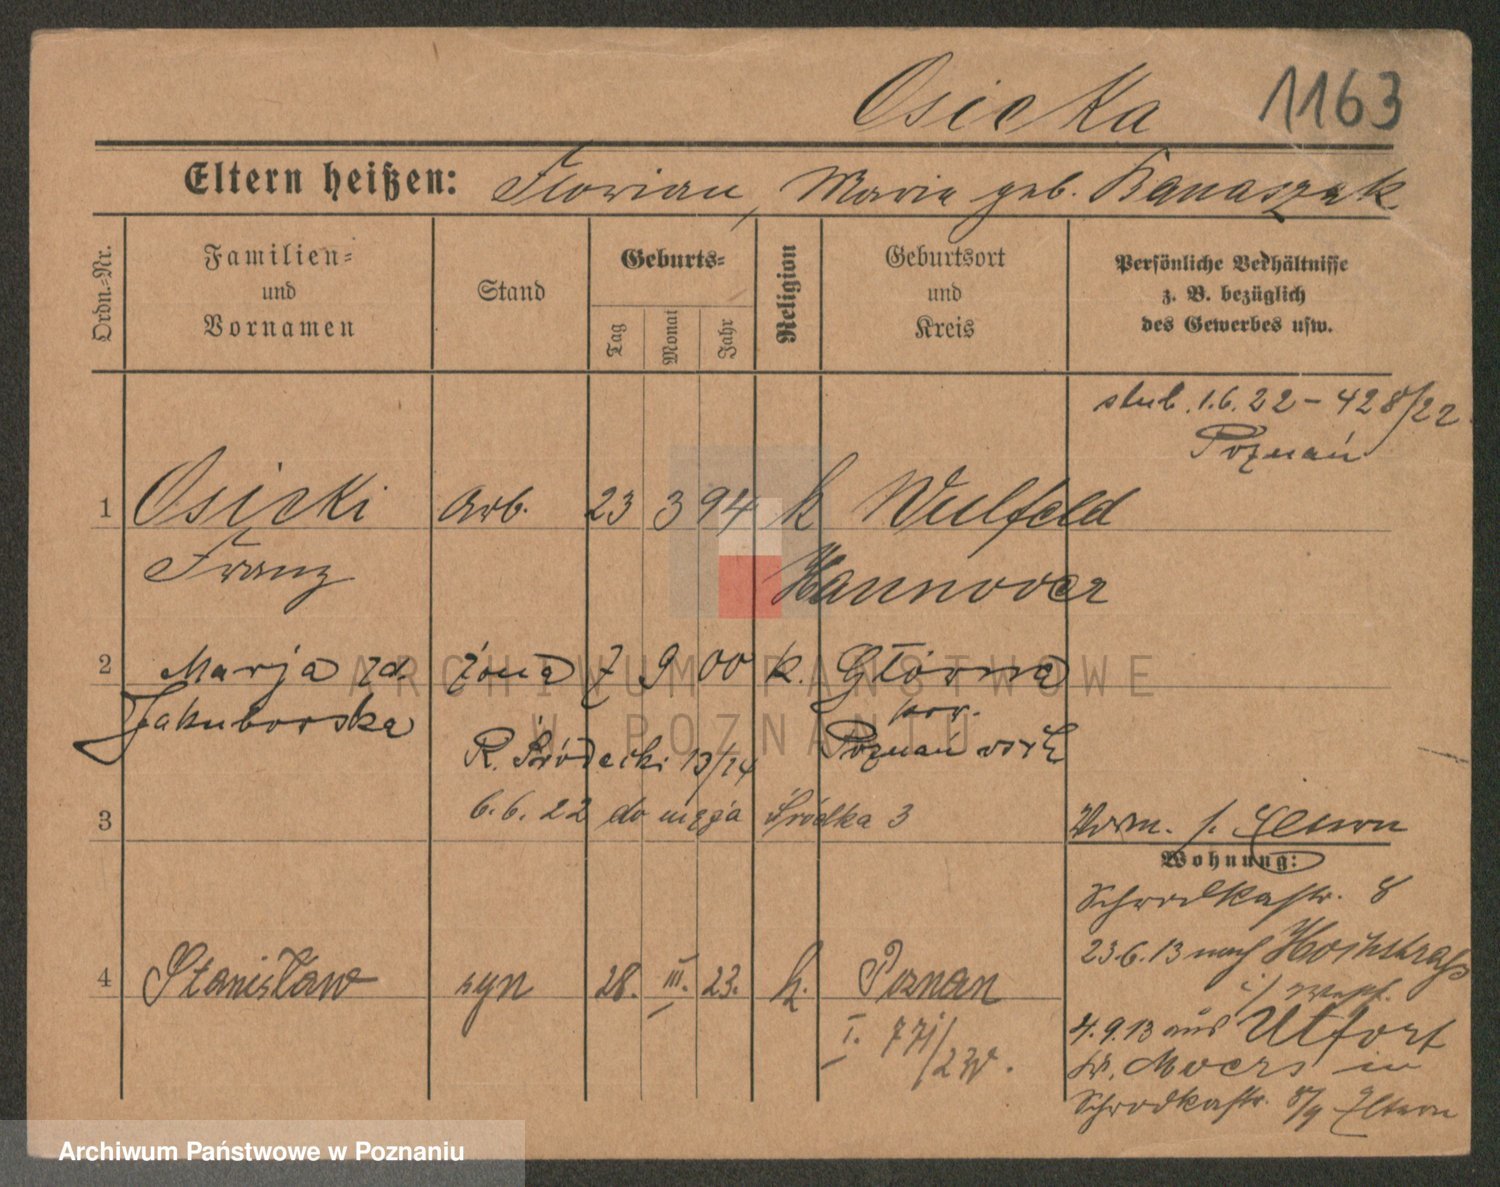 Osicka 1163
Eltern heißen: Florian, Marie geb. Banaszak
Ordn.-Nr.
Familien-
und
Vornamen
Stand
Geburts-
Tag
Monat
Jahr
Religion
Geburtsort
und
Kreis
Persönliche Verhältnisse
z. B. bezüglich
des Gewerbes usw.
slub. 1.6.22 – 428/22
Poznań
1 Osicki Arb. 23 3 94 k Wulfeld
Franz Hannover
2 Marja zd. żona 7 9 00 k. Główna
Jakuborska pow.
Poznań wsch
R. Śródecki 13/14
3 6.6.22 do męża Śródka 3
Vorm. s. Eltern
Wohnung:
Schrodkastr. 8
23.6.13 nach Hochstrass
4 Stanisław syn 28. III. 23. k. Poznan
I. 771/23
4.9.13 aus Utfort
Kr. Moers in
Schrodkastr. 8/9 Eltern
ARCHIWUM PAŃSTWOWE
W POZNANIU
Archiwum Państwowe w Poznaniu